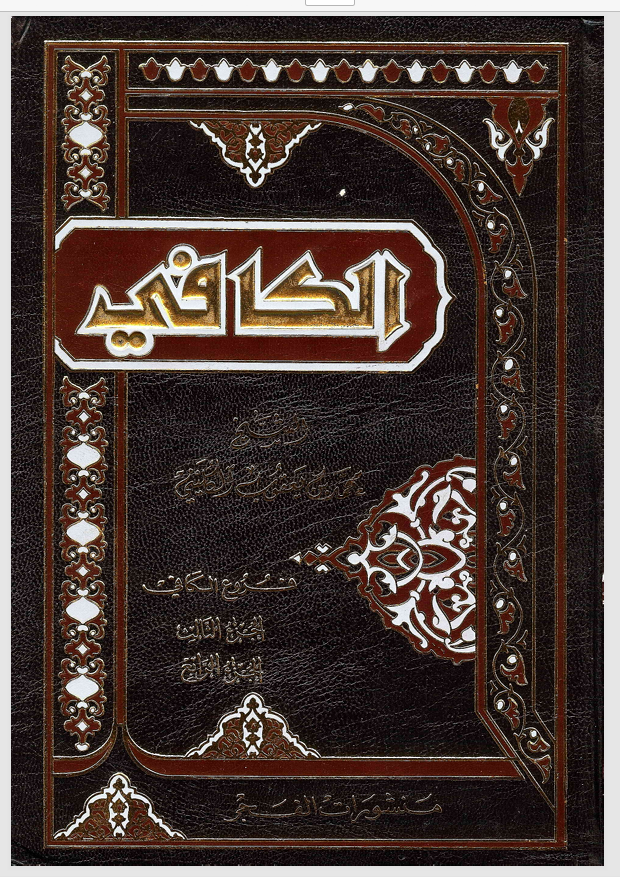 الكافي
للشيخ
محمد بن يعقوب الكليني
فروع الكافي
الجزء الثالث
الجزء الرابع
منشورات الفجر